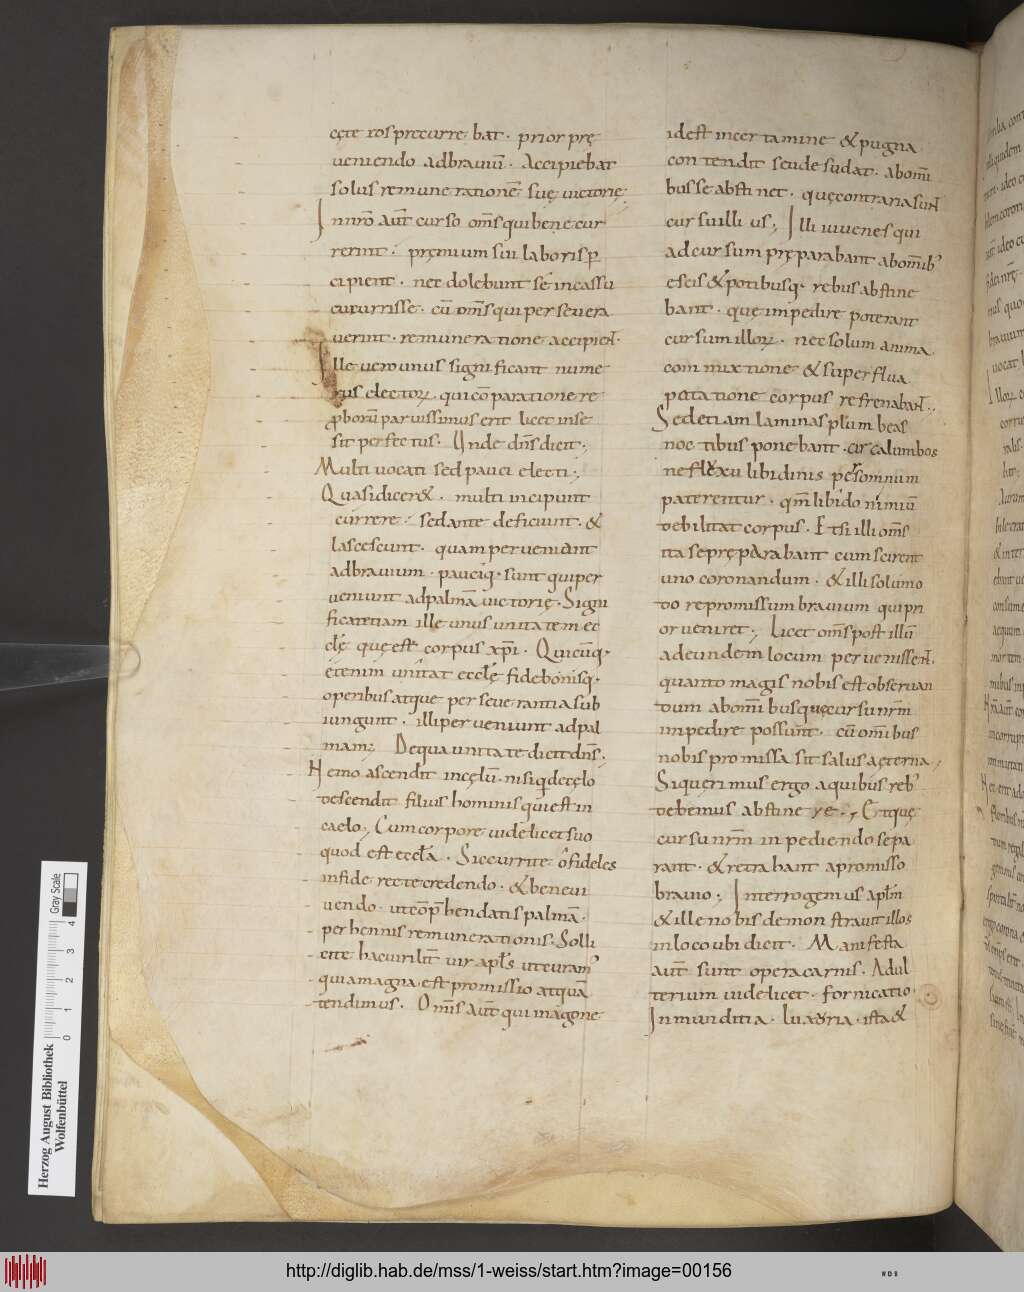 cęteros precurrebat. prior prę
ueniendo ad brauiū. Accipiebat
solus remunerationē suę uictorię;
In nr̄o aūt curso om̄s qui bene cur
rerint. pręmium sui laboris p̱
cipient. nec dolebunt se incassū
cucurrisse. cū om̄s qui perseuera
uerint. remuneratione accipient.
Ille uero unus significant nume
rus electoꝝ. qui cōparatione re
p̱boruū paruissimus erit licet in se
sit perfectus. Unde dn̄s dicit;
Multi uocati sed pauci electi;
Quasi diceret. multi incipiunt
currere. sed ante deficiunt. &
lascescunt. quam perueniant
ad brauium. pauciq; sunt qui per
ueniunt ad palmā uictorię. Signi
ficat etiam ille unus unitatem ec
clę̄ quę est corpus xp̄i. Quicūq;
etenim unitat ecclę̄ fide bonisq;
operibus atque perseuerantia sub
iungunt. illi perueniunt ad pal
mam; De qua unitate dicit dn̄s.
Nemo ascendit in cęlū. nisi q̱ de cęlo
descendit filius hominis qui est in
caelo; Cum corpore uidelicet suo
quod est eccl̄a. Sic currite ô fideles
in fide recte credendo. & bene ui
uendo. ut cōp̄hendatis palmā.
perhennis remunerationis. Solli
cite hac uirilit̄ uir apl̄s ut curam̄
quia magna est promissio at quā
tendimus. Om̄is aūt qui in agone
id est in certamine & pugna
contendit se ude sudat. ab om̄i
bus se abstinet. quę contraria sunt
cursui illius; Illi iuuenes qui
ad cursum pręparabant ab om̄ib;
escis & potibusq; rebus abstine
bant. quę inpedire poterant
cursum illoꝝ. nec solum a nima
commixtione & superflua
potatione corpus refrenabant;
Sed etiam laminas plūmbeas
noctibus ponebant circa lumbos
ne fluxu libidinis per somnium
paterentur. qm̄ libido nimiū
debilitat corpus. Etsi illi om̄s
ita se pręparabant cum scirent
uno coronandum. & illi solumo
do repromissum brauium qui pri
or ueniret; Licet om̄s post illū
ad eundem locum peruenissent.
quanto magis nobis est obseruan
dum ab om̄ibus quę cursu nr̄m
inpedire possunt. cū om̄ibus
nobis promissa sit salus aęterna;
Si querimus ergo a quibus reb;
debemus abstinere; Et quę
cursu nr̄m inpediendo sepa
rant. & retrahant a promisso
brauio; Interrogemus apl̄m
& ille nobis demonstrauit illos
in loco ubi dicit. Manifesta
aūt sunt opera carnis. Adul
terium uidelicet. fornicatio.
Inmunditia. luxuria. ista &
Herzog August Bibliothek
Wolfenbüttel
0 1 2 3 4
Gray Scale
http://diglib.hab.de/mss/1-weiss/start.htm?image=00156